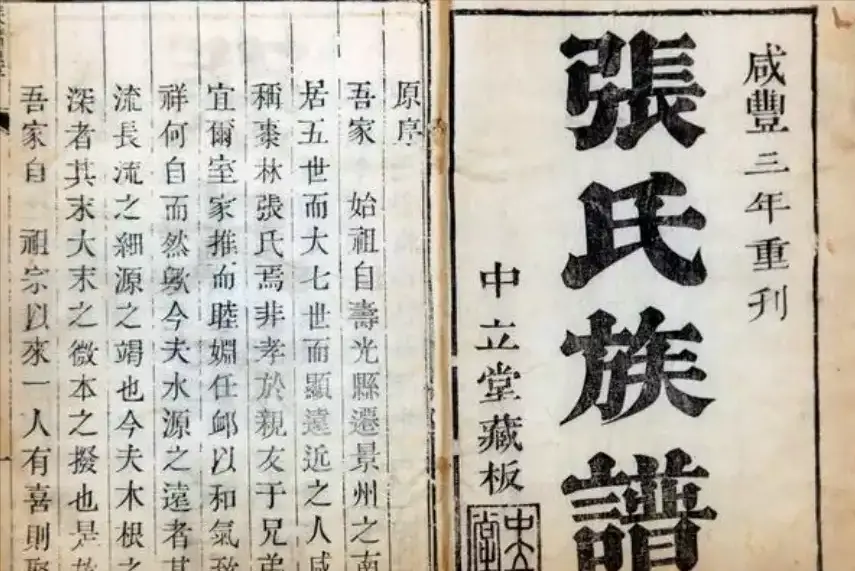 咸豐三年重刊
張氏族譜
中立堂藏板
中立
堂
原序
吾家 始祖自壽光縣遷景州之南
居五世而大七世而顯遠近之人咸
稱棗林張氏焉非孝於親友于兄弟
宜爾室家推而睦婣任卹以和氣致
祥何自而然歟今夫水源之遠者其
流長流之細源之竭也今夫木根之
深者其末大末之微本之撥也是故
吾家自 祖宗以來一人有喜則